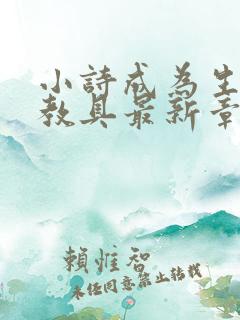 小詩成為生
教具最新章
賴惟智
未任同意禁止转载